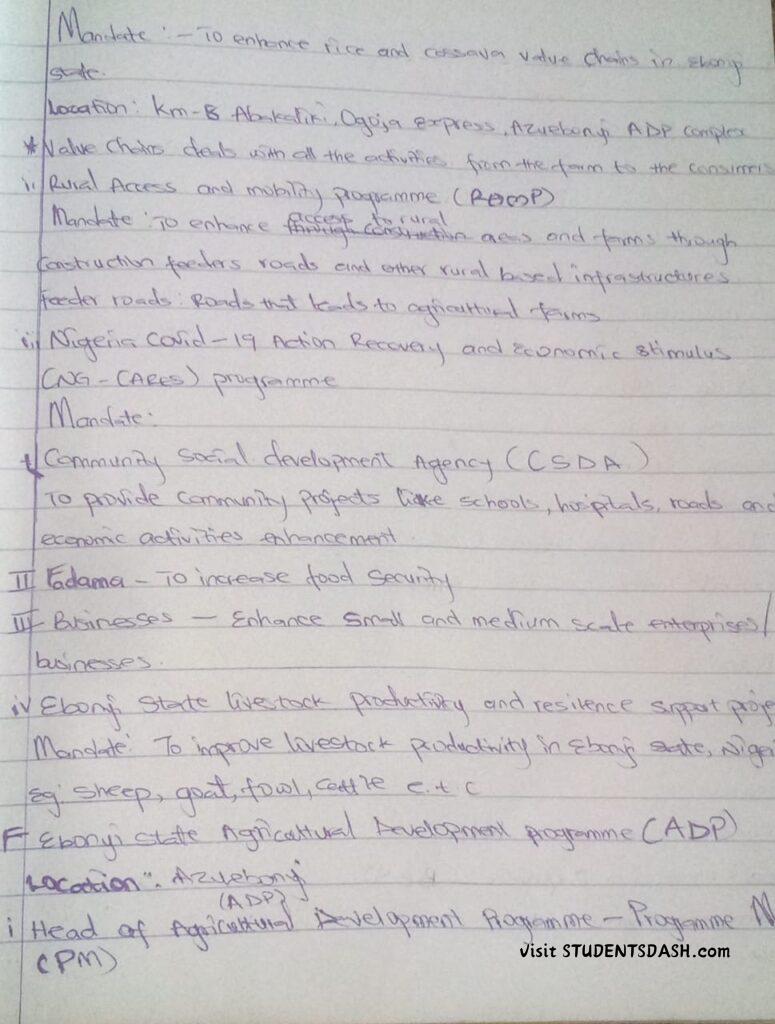 Mandate : - To enhance rice and cassava value chains in Ebonyi
state.
Location: Km-8 Abakaliki, Ogoja express, Azuebonyi ADP complex
* Value chains deals with all the activities from the farm to the consumers
ii Rural Access and mobility programme
access to rural
Mandate : To enhance through construction areas and farms through
Construction feeders roads and other rural based infrastructures
feeder roads: Roads that leads to agricultural farms
iii Nigeria Covid-19 Action Recovery and Economic Stimulus
(NG-CARES) programme
Mandate:
I Community Social development Agency (CSDA)
To provide community projects like schools, hospitals, roads and
economic activities enhancement.
II Fadama - To increase food security
III Businesses - Enhance small and medium scale enterprises/
businesses.
iv Ebonyi State livestock productivity and resilence support proje
Mandate: To improve livestock productivity in Ebonyi state, Nigeri
Eg. sheep, goat, fowl, cattle e.t.c
F Ebonyi State Agricultural Development programme (ADP)
Location: Azuebonyi
(ADP)
i Head of Agricultural Development Programme - Programme M
(PM)
Visit STUDENTSDASH.com